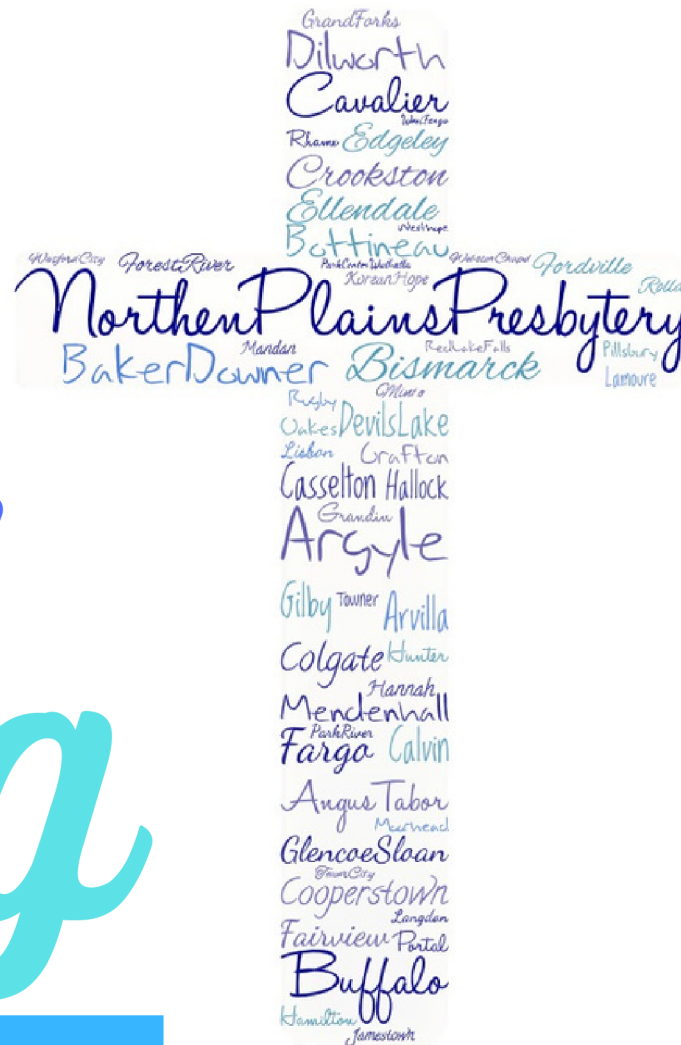 GrandForks
Dilworth
Cavalier
WestFargo
Rhame Edgeley
Crookston
Ellendale
Westhope
Bottineau
WatfordCity ForestRiver ParkCenter Walhalla WheelerChapel Fordville
KoreanHope Rolla
NorthenPlainsPresbytery
Mandan RedLakeFalls Pillsbury
BakerDowner Bismarck Lamoure
Rugby GMinto
Oakes DevilsLake
Lisbon Grafton
Casselton Hallock
Grandin
Argyle
Gilby Towner Arvilla
Colgate Hunter
Hannah
Mendenhall
ParkRiver
Fargo Calvin
Angus Tabor
Moorhead
GlencoeSloan
TowerCity
Cooperstown
Langdon
Fairview Portal
Buffalo
Hamilton
Jamestown
g